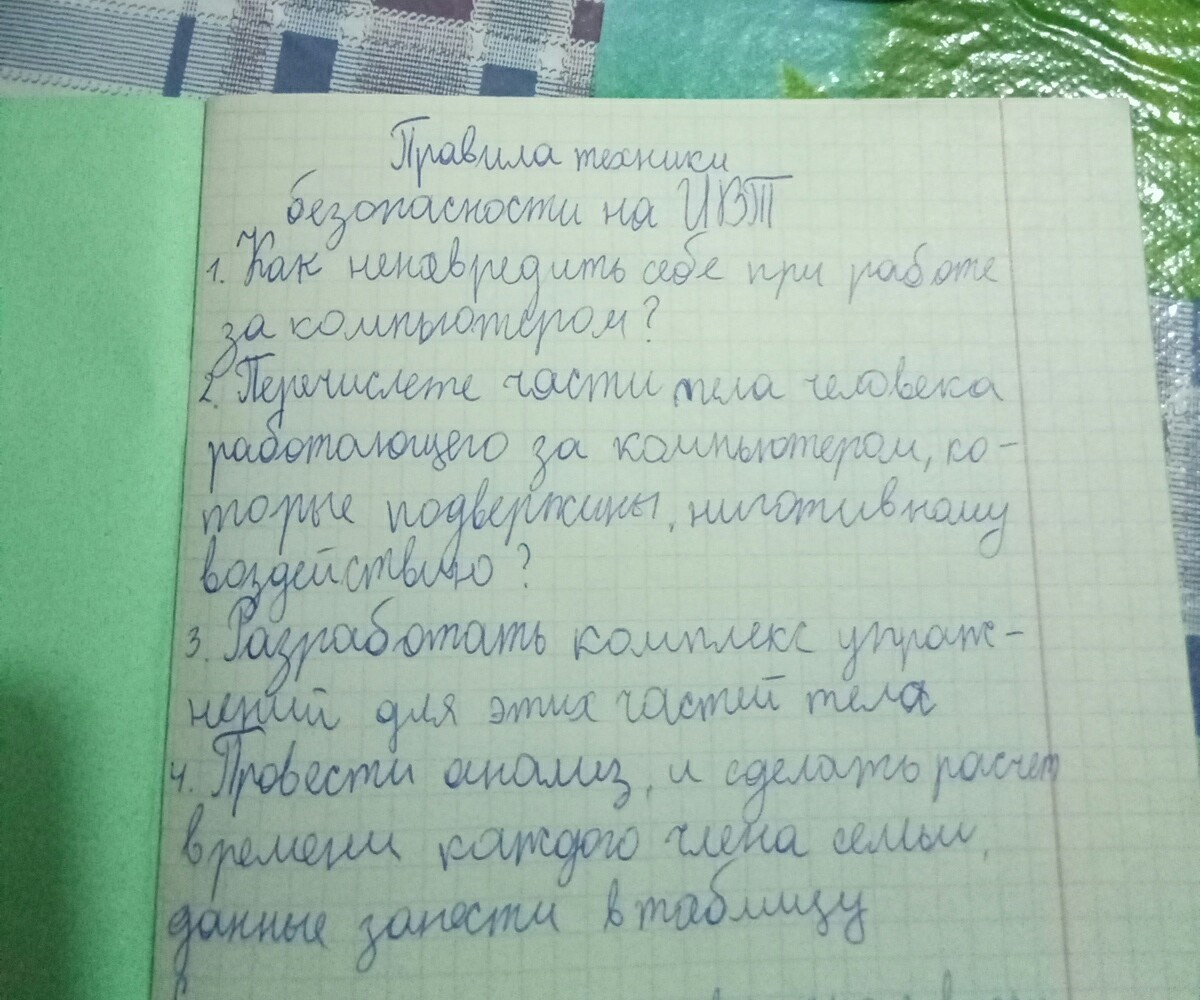 Правила техники
безопасности на ИВТ
1. Как ненавредить себе при работе
за компьютером?
2. Перечислете части тела человека
работающего за компьютером, ко-
торые подвержины, нигативному
воздействию?
3. Разработать комплекс упраж-
нений для этих частей тела
4. Провести анализ, и сделать расчет
времени каждого члена семьи,
данные заности в таблицу